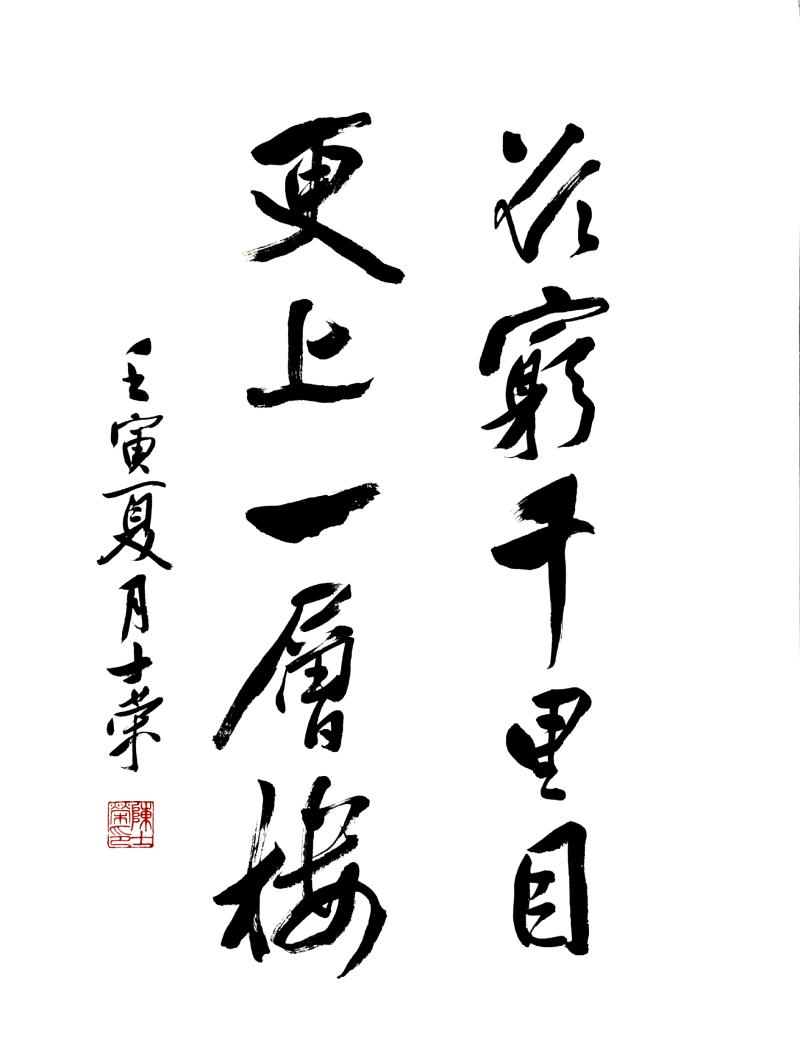 欲窮千里目
更上一層樓
壬寅夏月士荣
陳士
榮印